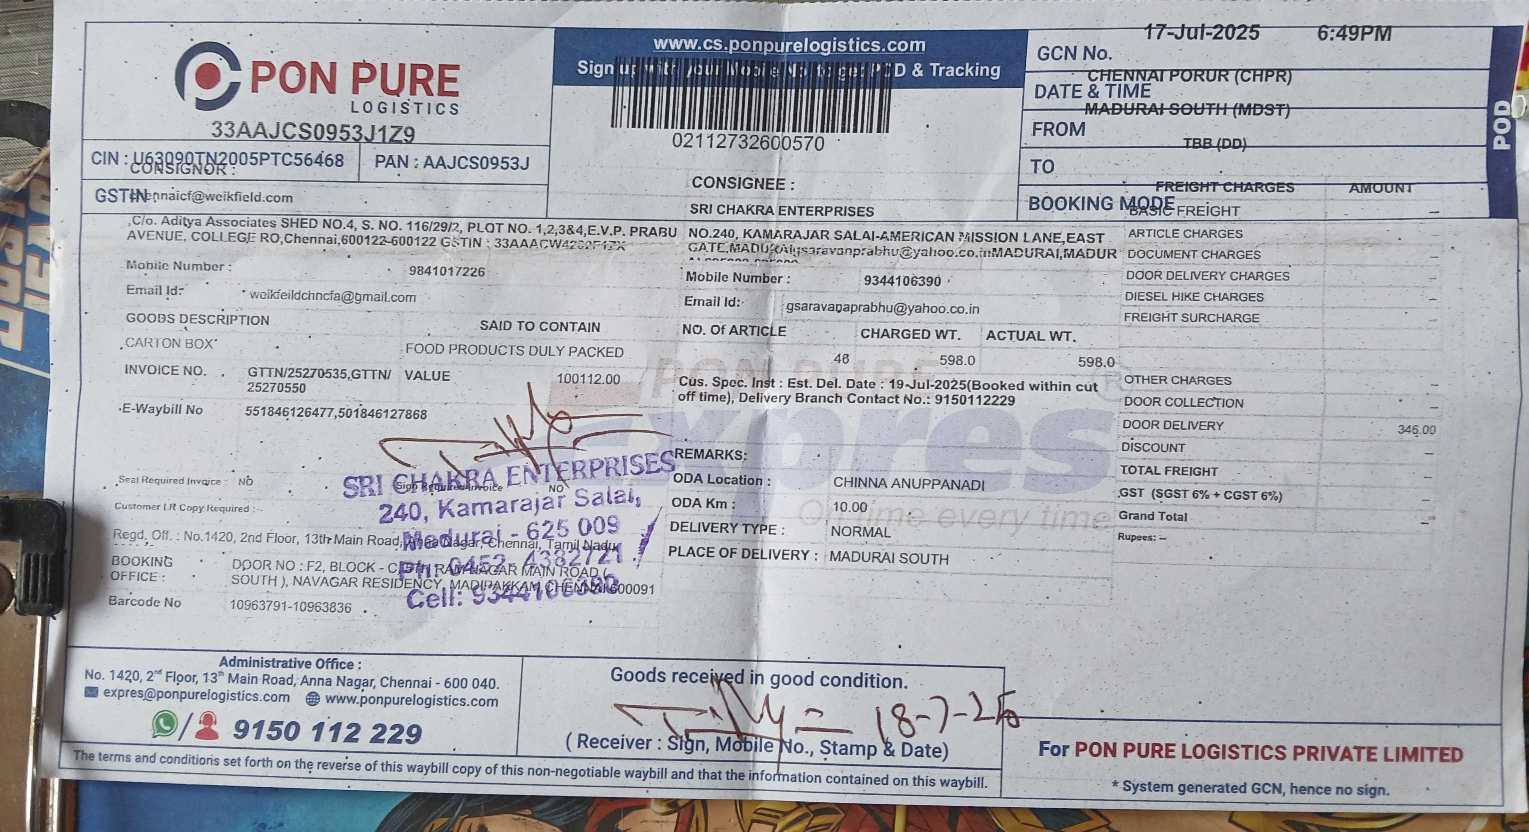 PON PURE
LOGISTICS
33AAJCS0953J1Z9
CIN : U63090TN2005PTC56468
PAN : AAJCS0953J
CONSIGNOR :
GSTIN
chennaicf@weikfield.com
www.cs.ponpurelogistics.com
Sign up with your Mobile No. to get POD & Tracking
02112732600570
CONSIGNEE :
SRI CHAKRA ENTERPRISES
17-Jul-2025 6:49PM
GCN No.
CHENNAI PORUR (CHPR)
DATE & TIME
MADURAI SOUTH (MDST)
FROM
TBB (DD)
TO
FREIGHT CHARGES AMOUNT
BOOKING MODE
POD
C/o. Aditya Associates SHED NO.4, S. NO. 116/29/2, PLOT NO. 1,2,3&4,E.V.P. PRABU
AVENUE, COLLEGE RO,Chennai,600122-600122 GSTIN :
Mobile Number : 9841017226
Email Id: weikfeildchncfa@gmail.com
GOODS DESCRIPTION SAID TO CONTAIN
CARTON BOX FOOD PRODUCTS DULY PACKED
INVOICE NO. GTTN/25270535,GTTN/ VALUE 100112.00
25270550
E-Waybill No 551846126477,501846127868
NO.240, KAMARAJAR SALAI-AMERICAN MISSION LANE,EAST
gsaravanprabhu@yahoo.co.inMADURAI,MADUR
Mobile Number : 9344106390
Email Id: gsaravanaprabhu@yahoo.co.in
NO. Of ARTICLE CHARGED WT. ACTUAL WT.
46 598.0 598.0
Cus. Spec. Inst : Est. Del. Date : 19-Jul-2025(Booked within cut
off time), Delivery Branch Contact No.: 9150112229
PON PURE
Expres
On time every time
REMARKS:
ODA Location : CHINNA ANUPPANADI
ODA Km : 10.00
DELIVERY TYPE : NORMAL
PLACE OF DELIVERY : MADURAI SOUTH
BASIC FREIGHT –
ARTICLE CHARGES –
DOCUMENT CHARGES –
DOOR DELIVERY CHARGES –
DIESEL HIKE CHARGES –
FREIGHT SURCHARGE –
OTHER CHARGES –
DOOR COLLECTION –
DOOR DELIVERY 346.00
DISCOUNT –
TOTAL FREIGHT –
GST (SGST 6% + CGST 6%) –
Grand Total –
Rupees: –
Seal Required Invoice : NO
Sign Required Invoice NO
Customer LR Copy Required :-
Regd. Off. : No.1420, 2nd Floor, 13th Main Road, Anna Nagar, Chennai, Tamil Nadu
BOOKING OFFICE : DOOR NO : F2, BLOCK - RAM NAGAR MAIN ROAD (
SOUTH ), NAVAGAR RESIDENCY, MADIPAKKAM, CHENNAI 600091
Barcode No 10963791-10963836
SRI CHAKRA ENTERPRISES
240, Kamarajar Salai,
Madurai - 625 009
Ph: 0452 - 4382721
Cell: 9344106390
Administrative Office :
No. 1420, 2nd Floor, 13th Main Road, Anna Nagar, Chennai - 600 040.
expres@ponpurelogistics.com www.ponpurelogistics.com
9150 112 229
Goods received in good condition.
18-7-25
( Receiver : Sign, Mobile No., Stamp & Date)
The terms and conditions set forth on the reverse of this waybill copy of this non-negotiable waybill and that the information contained on this waybill.
For PON PURE LOGISTICS PRIVATE LIMITED
* System generated GCN, hence no sign.